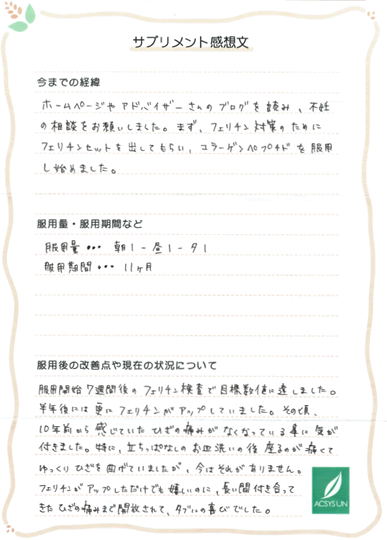 サプリメント感想文
今までの経緯
ホームページやアドバイザーさんのブログを読み、不妊
の相談をお願いしました。まず、フェリチン対策のために
フェリチンセットを出してもらい、コラーゲンペプチドを服用
し始めました。
服用量・服用期間など
服用量・・・ 朝1-昼1-夕1
服用期間・・・ 11ヶ月
服用後の改善点や現在の状況について
服用開始7週間後のフェリチン検査で目標数値に達しました。
半年後には更にフェリチンがアップしていました。その頃、
10年前から感じていたひざの痛みがなくなっている事に気が
付きました。特に、立ちっぱなしのお皿洗いの後 座るのが痛くて
ゆっくりひざを曲げていましたが、今はそれがありません。
フェリチンがアップしただけでも嬉しいのに、長い間付き合って
きたひざの痛みまで開放されて、ダブルの喜びでした。
ACSYSUN